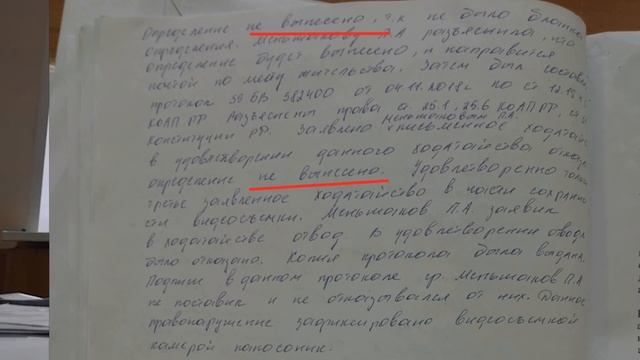 Определение не вынесено, т.к не было бланка
определения. Меньшикову П.А разъяснила, что
определение будет вынесено, и направится
почтой по месту жительства. Затем был составл
протокол 59 БВ 382400 от 04.11.2018г по ст 12.19 ч.5
КоАП РФ Разъяснены права ст. 25.1, 25.6 КоАП РФ, ст 51
Меньшиковым П.А.
Конституции РФ. Заявлено письменное ходатайс
в удовлетворении данного ходатайства отказ
определение не вынесено. Удовлетворено только
третье заявленное ходатайство в части сохранно
сти видеосъемки. Меньшиков П.А. заявил
в ходатайстве отвод. В удовлетворении отвода
было отказано. Копия протокола была выдана.
Подписи в данном протоколе гр. Меньшиков П.А
не поставил и не отказывался от них. Данное
правонарушение зафиксировано видеосъемкой
камерой панасоник.